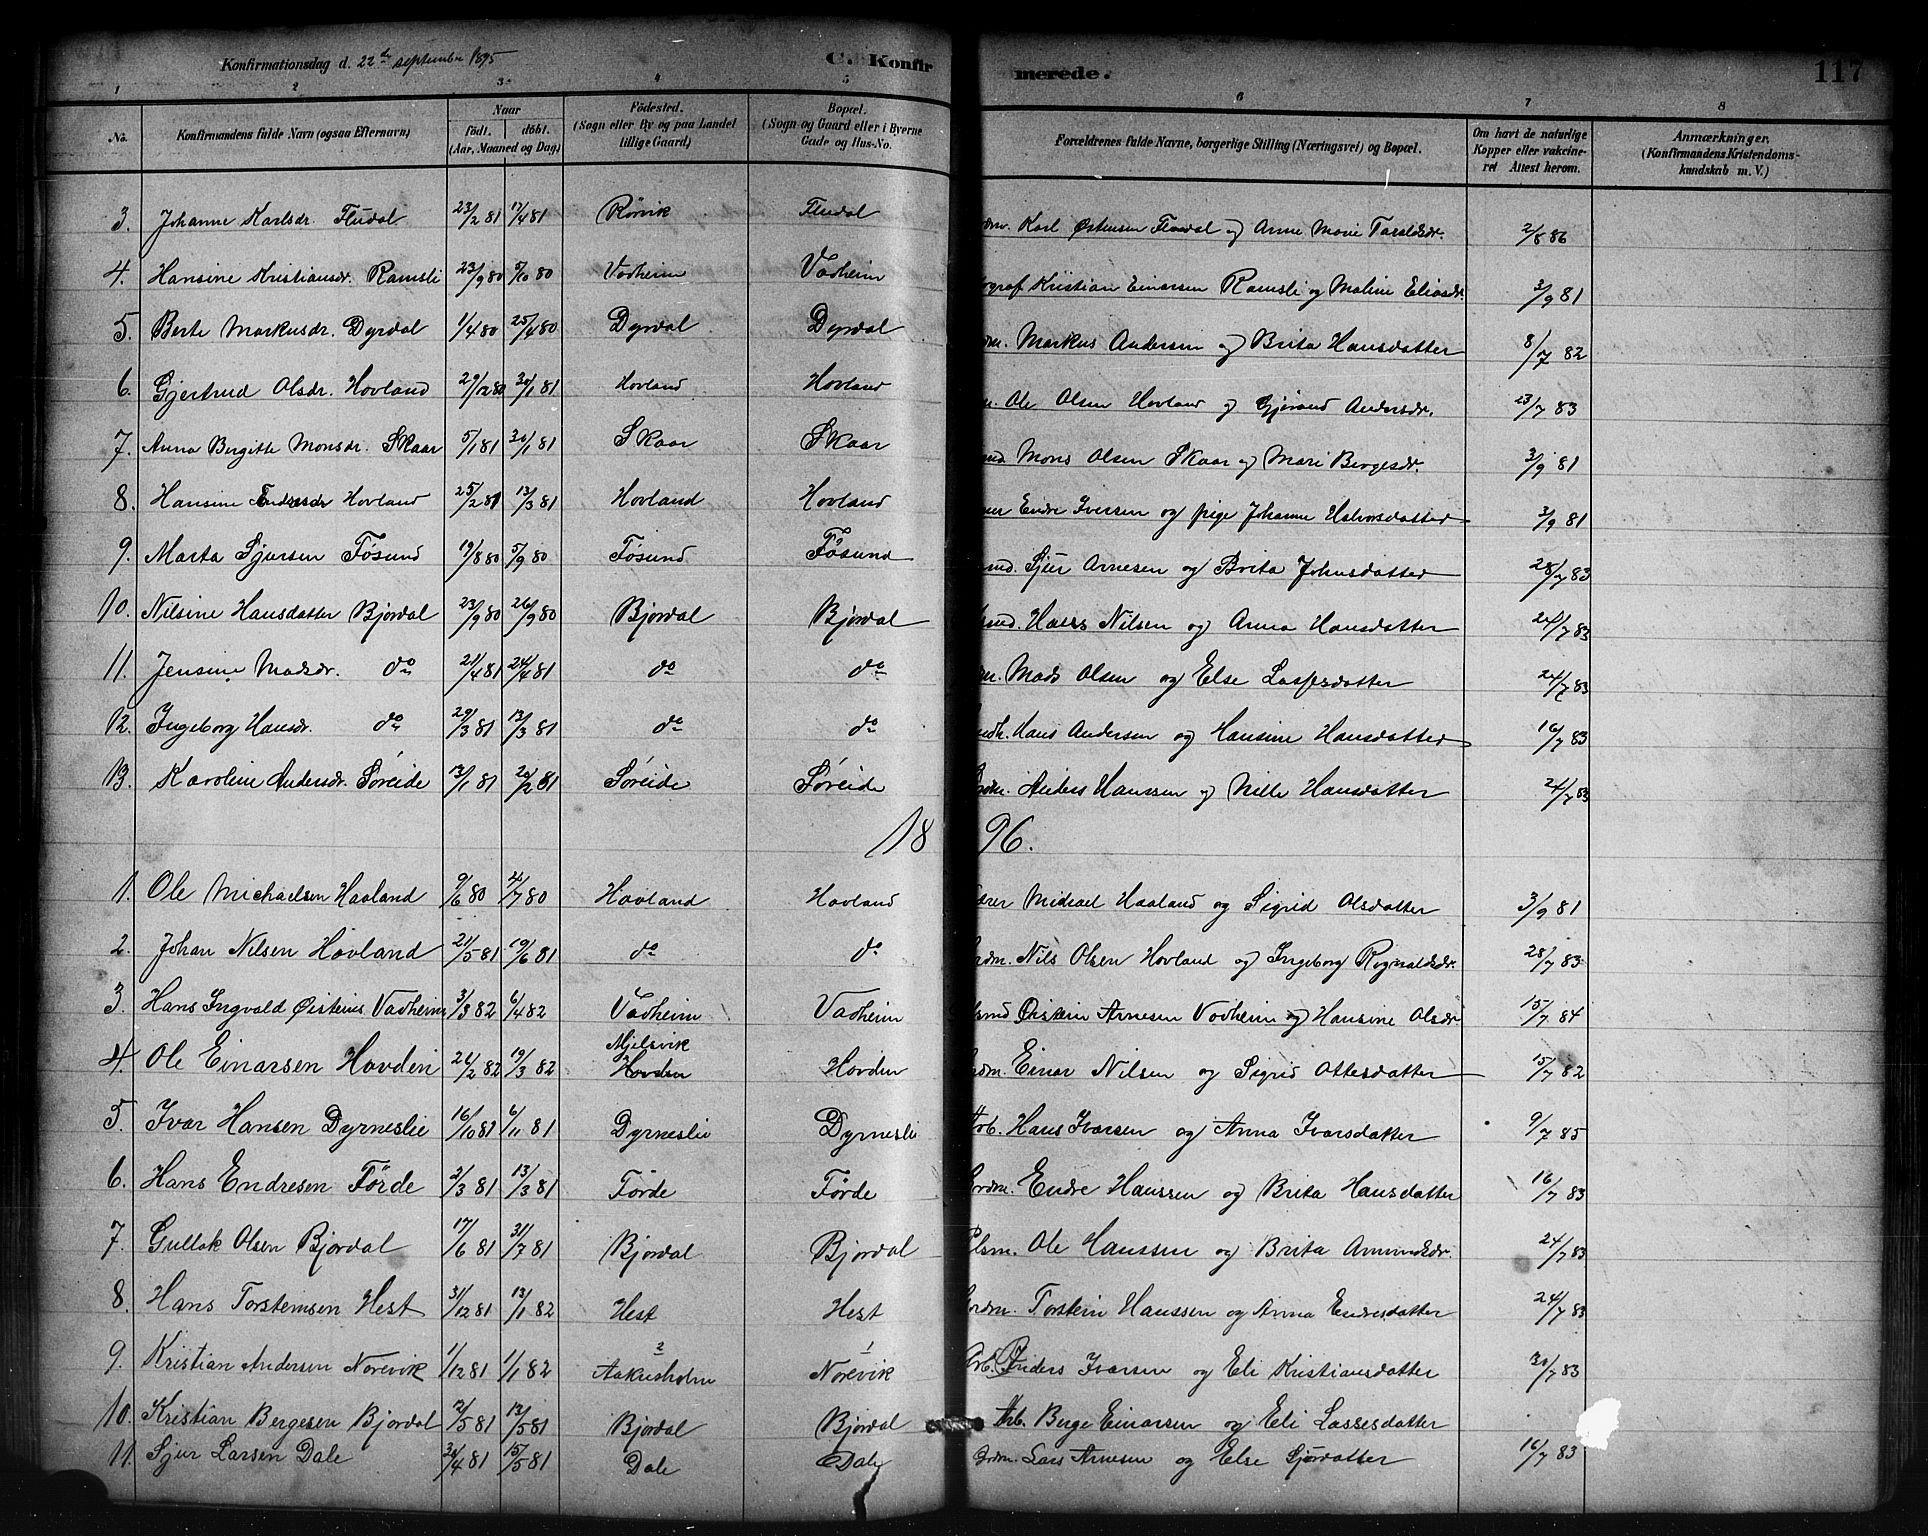 Konfirmationsdag d. 22de september 1895 C. Konfirmerede. 117
1 2 3 4 5 6 7 8
No. Konfirmandens fulde Navn (ogsaa Efternavn) Naar født. døbt. (Aar, Maaned og Dag) Födested. (Sogn eller By og paa Landet tillige Gaard) Bopæl. (Sogn og Gaard eller i Byerne Gade og Hus-No. Forældrenes fulde Navne, borgerlige Stilling (Næringsvei) og Bopæl. Om havt de naturlige Kopper eller vakcineret Attest herom. Anmærkninger. (Konfirmandens Kristendomskundskab m. V.)
3. Johanne Karlsdr. Fludal 23/2 81 17/4 81 Rørvik Fludal Karl Østensen Fludal og Anne Marie Taraldsdr. 2/8 86
4. Hansine Kristiansdr. Ramsli 23/9 80 5/10 80 Vadheim Vadheim Kristian Einarsen Ramsli og Maline Eliasdr. 3/9 81
5. Berte Markusdr. Dyrdal 1/4 80 25/4 80 Dyrdal Dyrdal Markus Andersen og Brita Hansdatter 8/7 82
6. Gjertrud Olsdr. Hovland 29/12 80 30/1 81 Hovland Hovland Ole Olsen Hovland og Gjörand Andersdr. 23/7 83
7. Anna Bergitte Monsdr. Skaar 5/1 81 30/1 81 Skaar Skaar Mons Olsen Skaar og Mari Bergesdr. 3/9 81
8. Hansine Endresdr Hovland 25/2 81 13/3 81 Hovland Hovland Endre Iversen og pige Johanne Halvorsdatter 3/9 81
9. Marta Sjursen Føsund 19/8 80 5/9 80 Føsund Føsund Sjur Arnesen og Brita Johnsdatter 28/7 83
10. Nilsine Hansdatter Bjórdal 23/9 80 26/9 80 Bjordal Bjórdal Hans Nilsen og Anna Hansdatter 24/7 83
11. Jensine Madsdr. do 21/4 81 24/4 81 do do Mads Olsen og Else Lassesdatter 24/7 83
12. Ingeborg Hansdr. do 29/3 81 13/3 81 do do Hans Andersen og Hansine Hansdatter 16/7 83
13. Karoline Andersdr. Söreide 13/1 81 20/2 81 Söreide Söreide Anders Hanssen og Nille Hansdatter 24/7 83
1896.
1. Ole Michaelsen Haaland 9/6 80 /7 80 Hovland Hovland Michael Haaland og Sigrid Olsdatter 3/9 81
2. Johan Nilsen Hovland 21/5 81 19/6 81 do do Nils Olsen Hovland og Ingeborg Rognaldsdr. 28/7 83
3. Hans Ingvald Øisteins. Vadheim 3/3 82 6/4 82 Vadheim Vadheim Øistein Arnesen Vadheim og Hansine Olsdr. 15/7 84
4. Ole Einarsen Hovden 26/2 82 19/3 82 Mjelsvik Hovden Hovden Einar Nilsen og Sigrid Ottesdatter 15/7 82
5. Ivar Hansen Dyrneslie 16/10 81 6/11 81 Dyrneslie Dyrnesli Arb. Hans Ivarsen og Anna Ivarsdatter 9/7 85
6. Hans Endresen Förde 2/3 81 13/3 81 Förde Förde Grdm. Endre Hanssen og Brita Hansdatter 16/7 83
7. Gullak Olsen Bjordal 17/6 81 31/7 81 Bjordal Bjordal Plsm. Ole Hanssen og Brita Amundsdr. 24/7 83
8. Hans Torsteinsen Hest 31/12 81 13/1 82 Hest Hest Grdm. Torstein Hanssen og Anna Endresdatter 24/7 83
9. Kristian Andersen Norevik 1/12 81 1/1 82 2 Aakresholm 1 Norevik Arb. Anders Ivarsen og Eli Kristiansdatter 30/7 83
10. Kristian Bergesen Bjordal 12/5 81 13/5 81 Bjordal Bjordal Arb. Berge Einarsen og Eli Lassesdatter
11. Sjur Larsen Dale 30/4 81 15/5 81 Dale Dale Grdm. Lars Arnesen og Else Sjurdatter 16/7 83